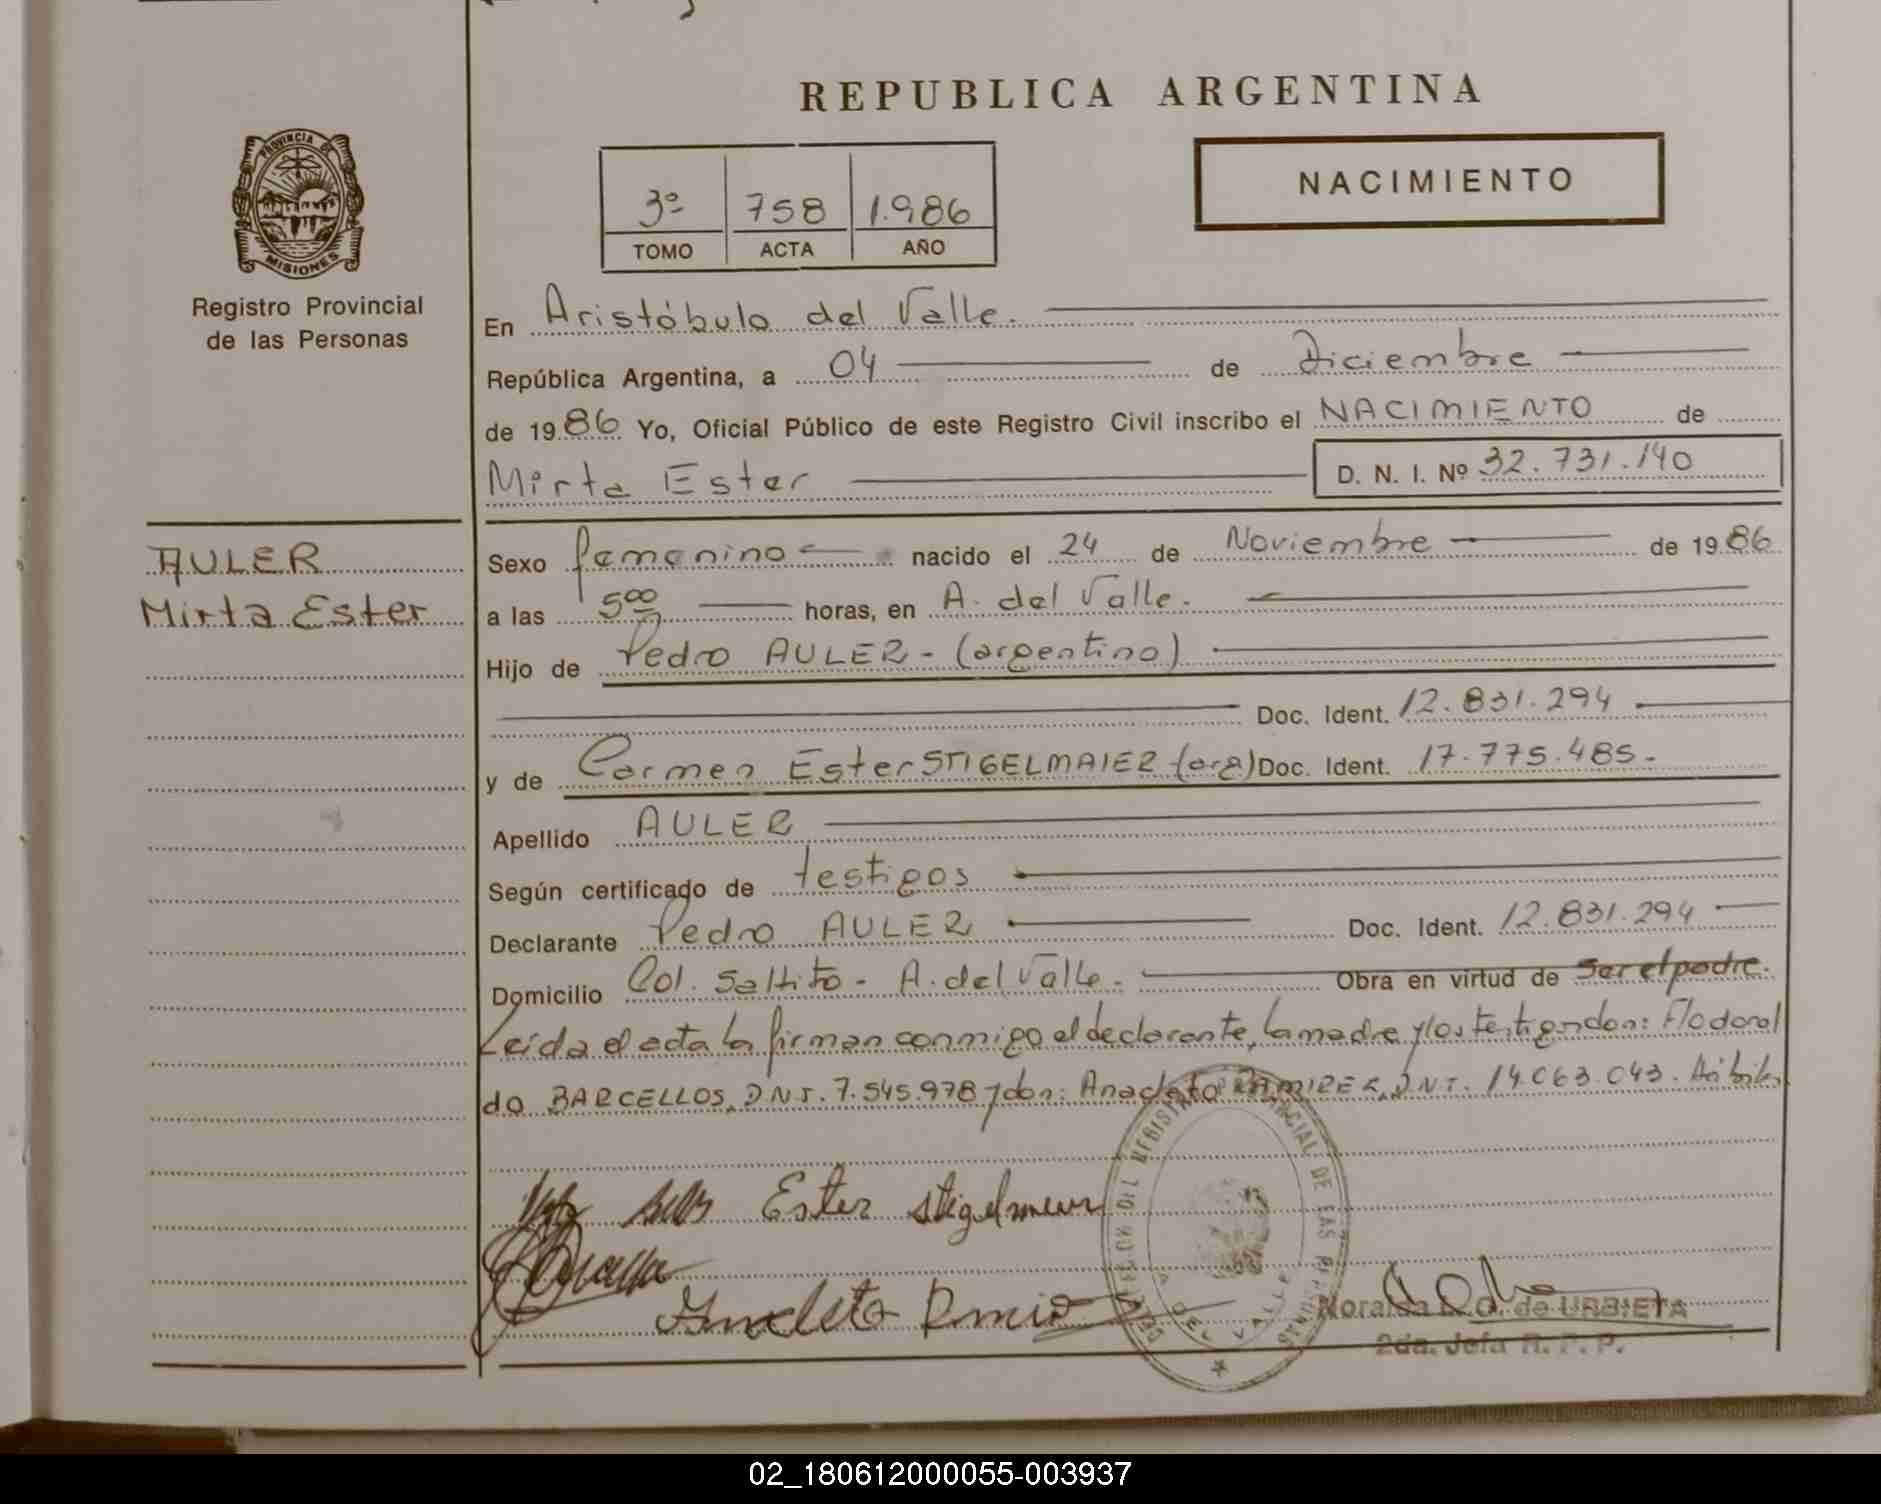 REPUBLICA ARGENTINA
PROVINCIA DE
MISIONES
Registro Provincial
de las Personas
3º 758 1.986
TOMO ACTA AÑO
NACIMIENTO
En Aristóbulo del Valle.
República Argentina, a 04 de Diciembre
de 1986 Yo, Oficial Público de este Registro Civil inscribo el NACIMIENTO de
Mirta Ester D. N. I. Nº 32.731.140
AULER
Mirta Ester
Sexo femenino nacido el 24 de Noviembre de 1986
a las 5⁰⁰ horas, en A. del Valle.
Hijo de Pedro AULER - (argentino)
Doc. Ident. 12.831.294
y de Carmen Ester STIGELMAIER (arg) Doc. Ident. 17.775.485.-
Apellido AULER
Según certificado de testigos
Declarante Pedro AULER Doc. Ident. 12.831.294
Domicilio Col. Saltito - A. del Valle. Obra en virtud de ser el padre.
Leída el acta la firman conmigo el declarante, la madre y los testigos don: Flodoral
do BARCELLOS, D.N.I. 7.545.978 y don: Anacleto RAMIREZ, D.N.I. 14.063.043.
Ester stigelmeur
Anacleto Ramirez
PROVINCIAL DE LAS PERSONAS
A. DEL VALLE
de URBIETA
2da. Jefa R. P. P.
02_180612000055-003937